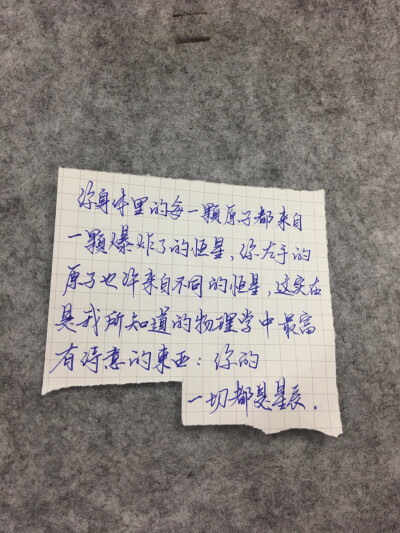 你身体里的每一颗原子都来自
一颗爆炸了的恒星,你左手的
原子也许来自不同的恒星,这实在
是我所知道的物理学中最富
有诗意的東西:你的
一切都是星辰.